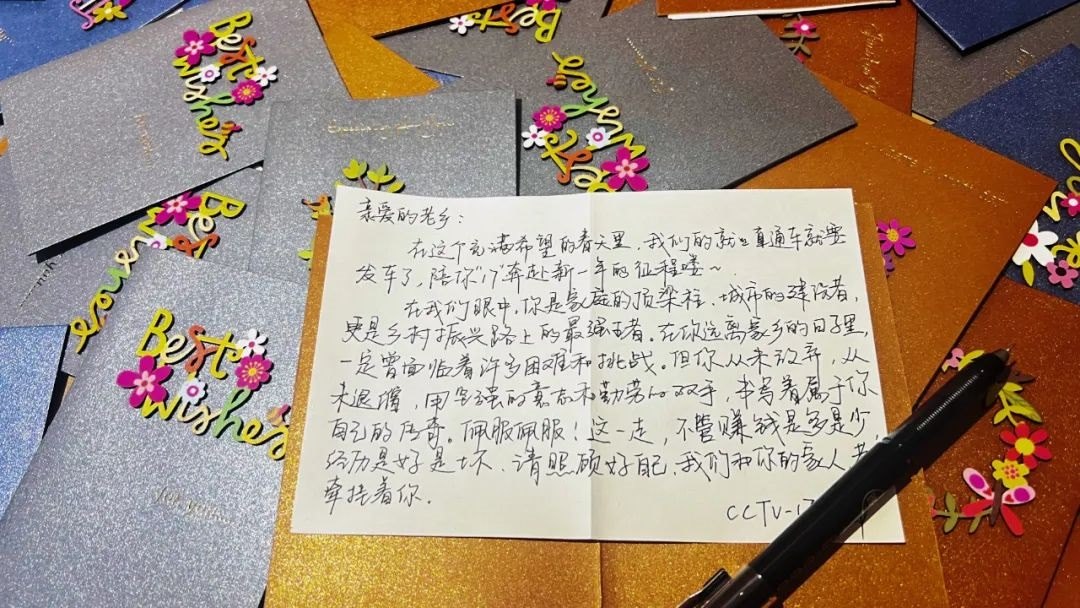 Best
wishes
Best
wishes
Best
wishes
Best
wishes
for you
亲爱的老乡：
在这个充满希望的春天里，我们的就业直通车就要
发车了，陪你"17"奔赴新一年的征程喽~
在我们眼中，你是家庭的顶梁柱、城市的建设者，
更是乡村振兴路上的最强王者。在你远离家乡的日子里，
一定曾面临着许多困难和挑战。但你从未放弃，从
未退缩，用坚强的意志和勤劳的双手，书写着属于你
自己的传奇。佩服佩服！这一走，不管赚钱是多是少，
经历是好是坏，请照顾好自己，我们和你的家人
牵挂着你。
CCTV-17